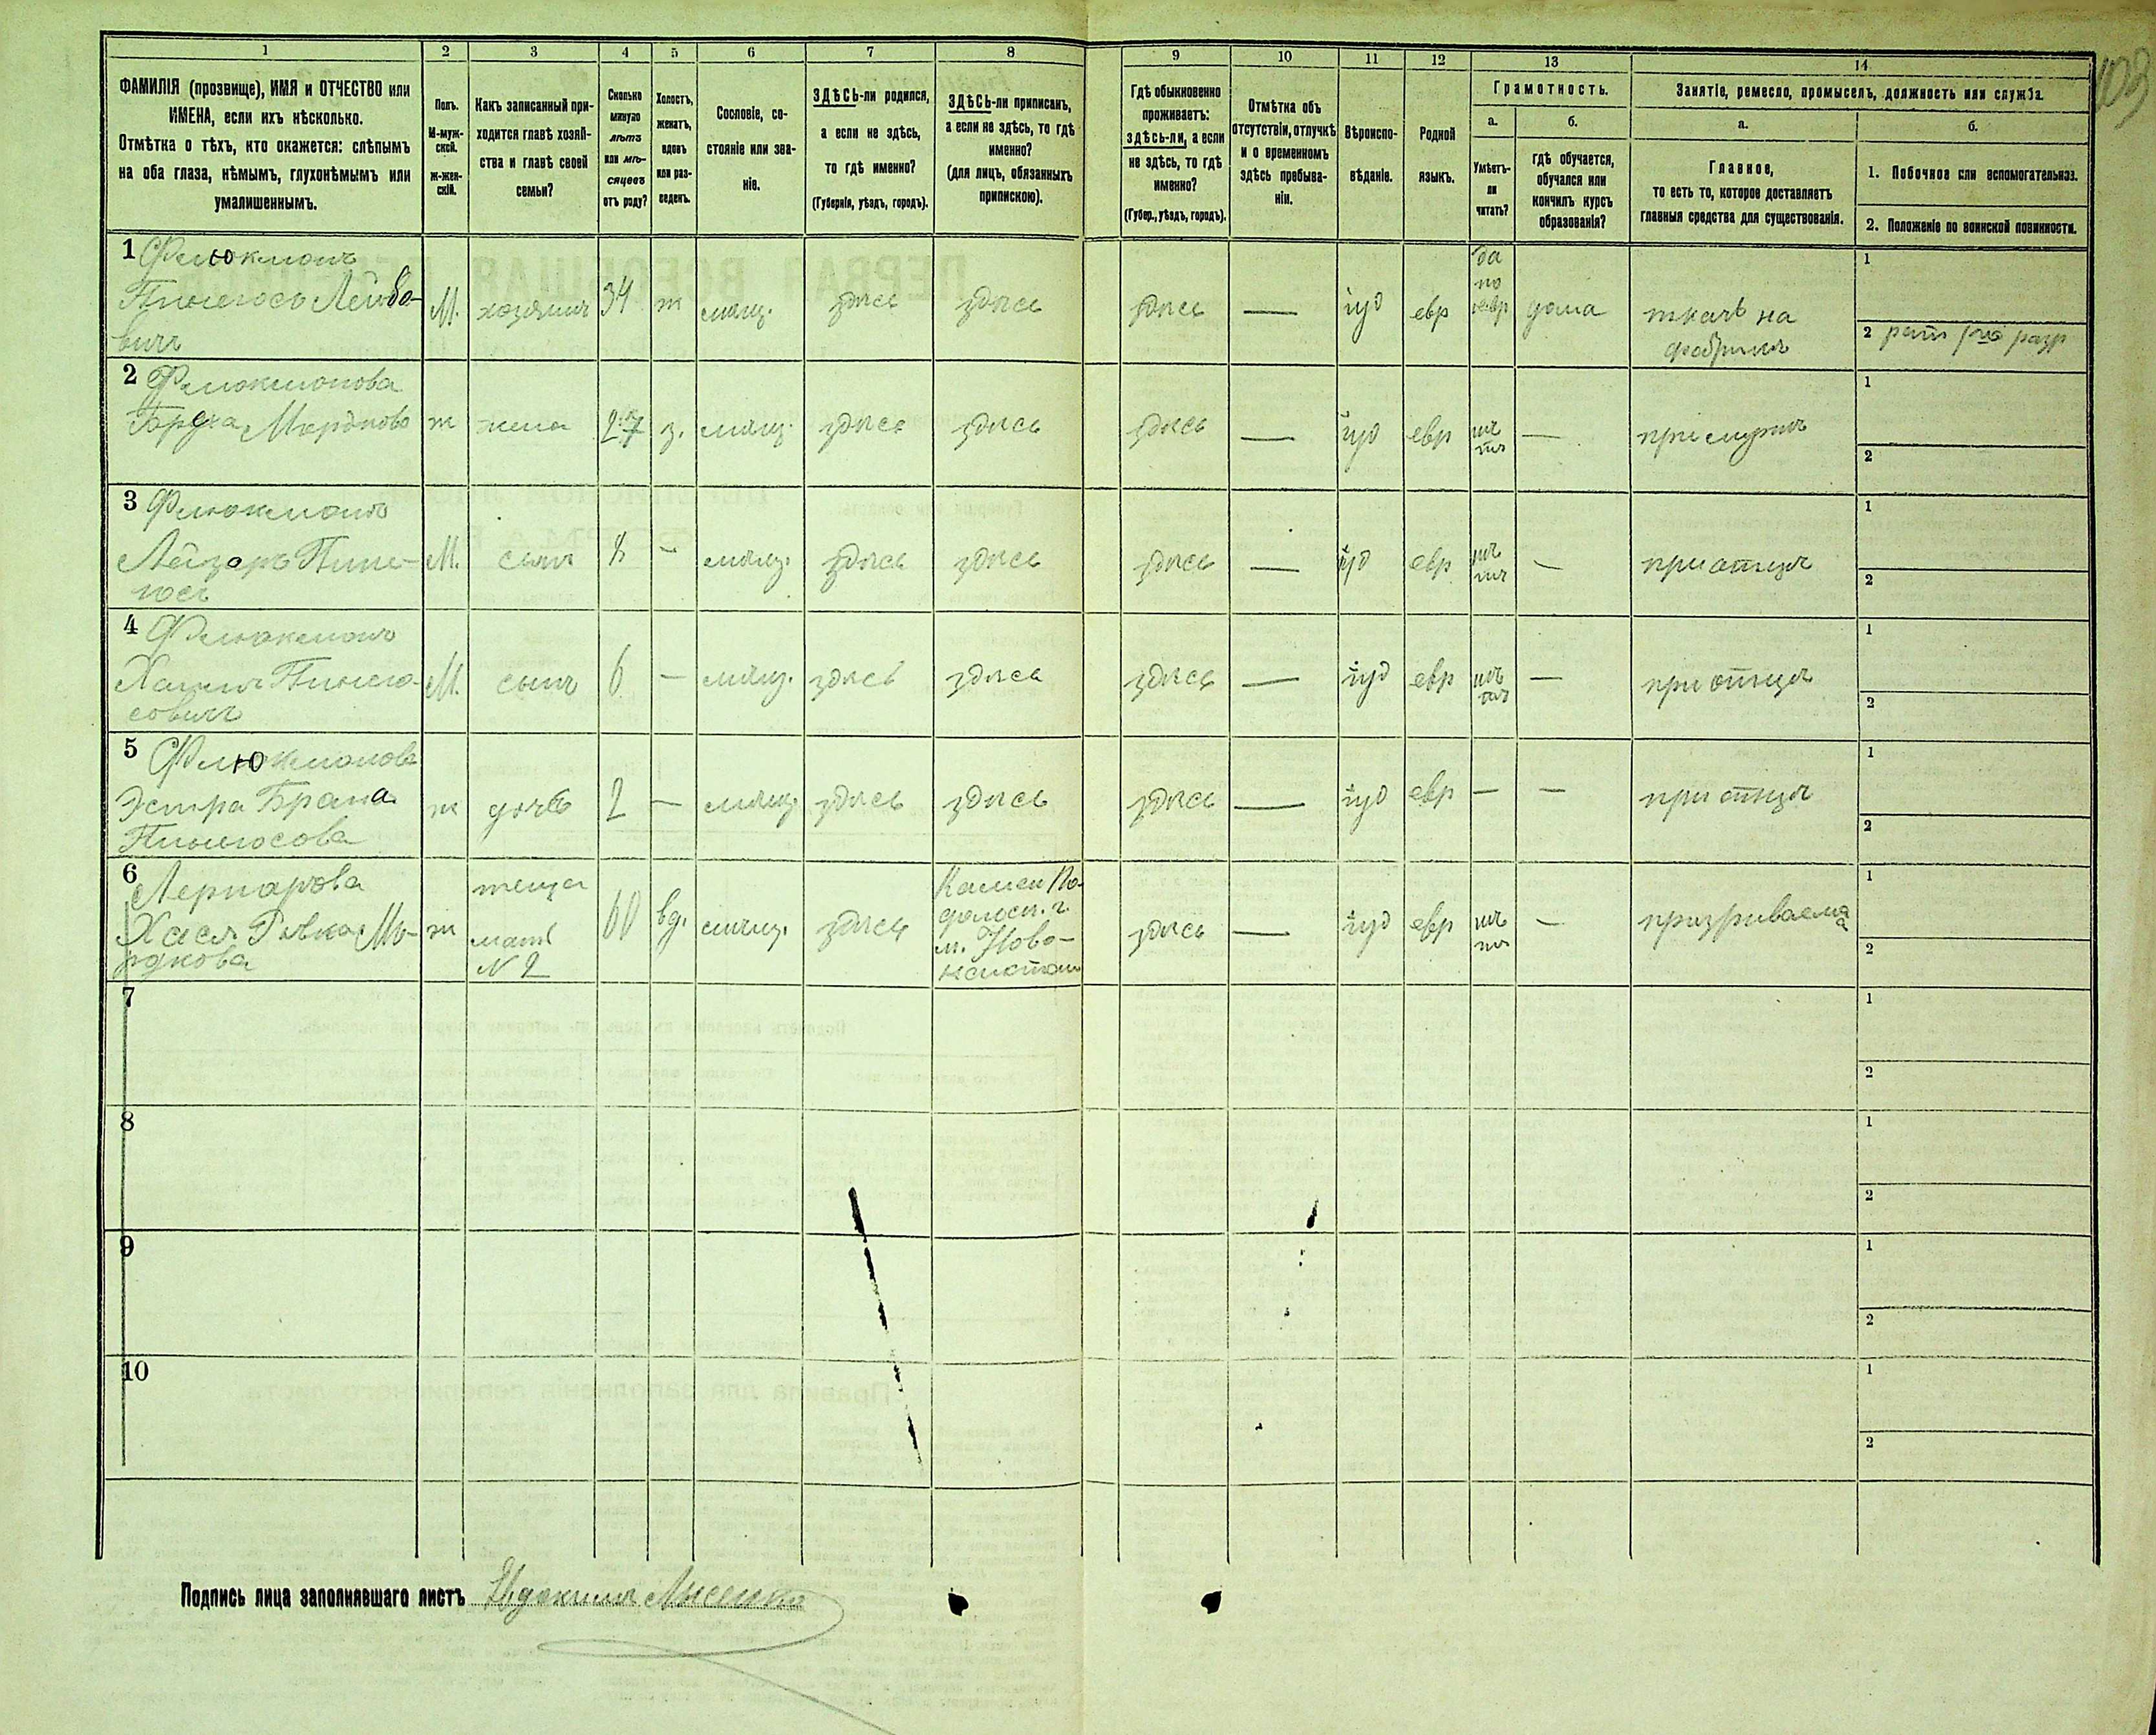 1 2 3 4 5 6 7 8 9 10 11 12 13 14
109
ФАМИЛІЯ (прозвище), ИМЯ и ОТЧЕСТВО или
ИМЕНА, если ихъ нѣсколько.
Отмѣтка о тѣхъ, кто окажется: слѣпымъ
на оба глаза, нѣмымъ, глухонѣмымъ или
умалишеннымъ.
Полъ.
М-муж-
ской.
Ж-жен-
скій.
Какъ записанный при-
ходится главѣ хозяй-
ства и главѣ своей
семьи?
Сколько
минуло
лѣтъ
или мѣ-
сяцевъ
отъ роду?
Холостъ,
женатъ,
вдовъ
или раз-
веденъ.
Сословіе, со-
стояніе или зва-
ніе.
ЗДѢСЬ-ли родился,
а если не здѣсь,
то гдѣ именно?
(Губернія, уѣздъ, городъ).
ЗДѢСЬ-ли приписанъ,
а если не здѣсь, то гдѣ
именно?
(для лицъ, обязанныхъ
припискою).
Гдѣ обыкновенно
проживаетъ:
здѣсь-ли, а если
не здѣсь, то гдѣ
именно?
(Губер., уѣздъ, городъ).
Отмѣтка объ
отсутствіи, отлучкѣ
и о временномъ
здѣсь пребыва-
ніи.
Вѣроиспо-
вѣданіе.
Родной
языкъ.
Грамотность.
а.
Умѣетъ-
ли
читать?
б.
гдѣ обучается,
обучался или
кончилъ курсъ
образованія?
Занятіе, ремесло, промыселъ, должность или служба.
а.
Главное,
то есть то, которое доставляетъ
главныя средства для существованія.
б.
1. Побочное или вспомогательное.
2. Положеніе по воинской повинности.
1 Флюкманъ
Пинхосъ Лейбо-
вичъ
М. хозяинъ 34 ж мѣщ. здѣсь здѣсь здѣсь — іуд евр
да
по
евр
дома
ткачъ на
фабрикѣ
1
2 разр
2 Флюкманова
Мордкова ж жена 27 з. мѣщ. здѣсь здѣсь здѣсь — іуд евр нѣтъ —
1
2
3 Флюкманъ
Лейзаръ
М. сынъ 8 — мѣщ. здѣсь здѣсь здѣсь — іуд евр нѣтъ — при отцѣ
1
2
4 Флюкманъ
Хаимъ Пинхо-
совичъ
М. сынъ 6 — мѣщ. здѣсь здѣсь здѣсь — іуд евр нѣтъ — при отцѣ
1
2
5 Флюкманова
Эстра Брана
Пинхосова
ж дочь 2 — мѣщ. здѣсь здѣсь здѣсь — іуд евр — — при отцѣ
1
2
6
Хася Ривка Мо-
рдкова
ж
теща
мать
№ 2
60 вд. мѣщ. здѣсь
Камен По-
дольск. г
м. Ново-
здѣсь — іуд евр нѣтъ — призрѣваемая
1
2
7
1
2
8
1
2
9
1
2
10
1
2
Подпись лица заполнявшаго листъ Евдокимъ